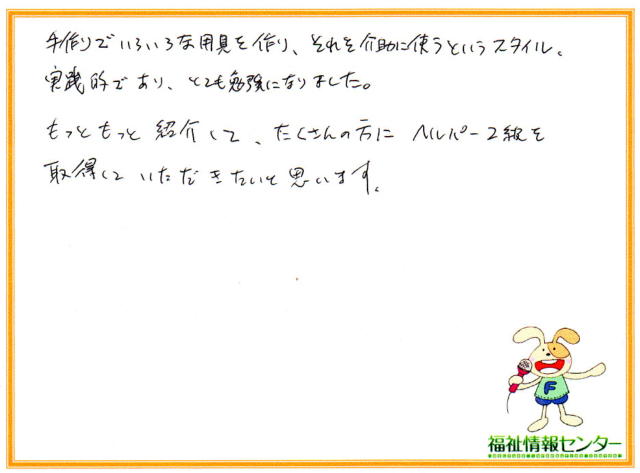 手作りでいろいろな用具を作り、それを介助に使うというスタイル。
実践的であり、とても勉強になりました。
もっともっと紹介して、たくさんの方にヘルパー2級を
取得していただきたいと思います。
F
福祉情報センター